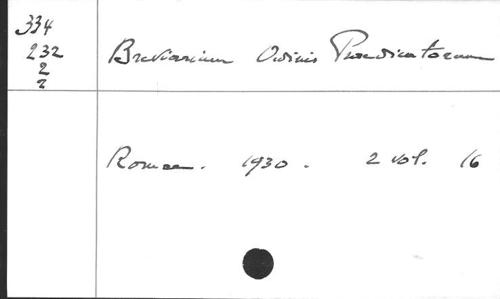 334
232
2
2
Breviarium Ordinis Praedicatorum
Romae. 1930. 2 vol. 16